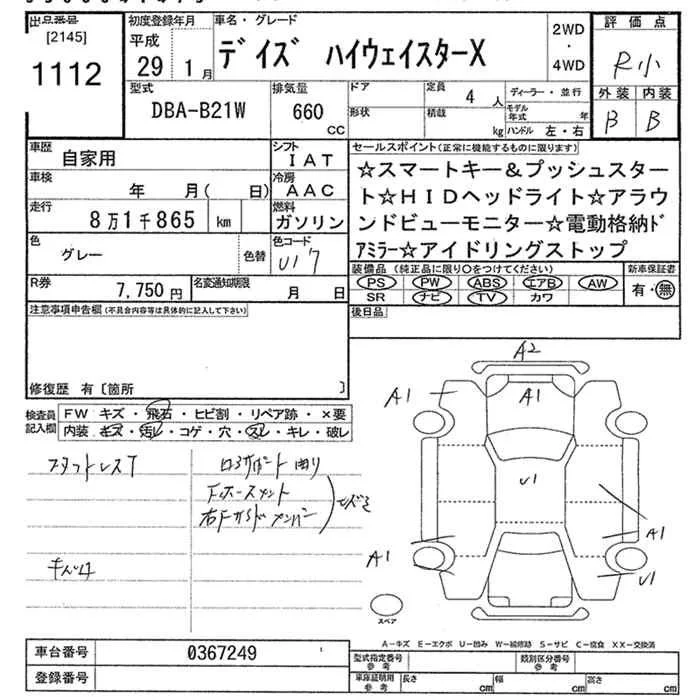 出品番号
[2145]
1112
初度登録年月
平成
29 1月
車名・グレード
デイズ ハイウェイスターX
2WD
・
4WD
評価点
R小
外装 内装
B B
型式
DBA-B21W
排気量
660
CC
ドア
形状
定員
4 人
積載
kg
ディーラー・並行
モデル年式 年
ハンドル 左・右
車歴
自家用
シフト
IAT
車検
年 月( 日)
冷房
AAC
走行
8万1千865 km
燃料
ガソリン
色
グレー
色替
色コード
R券
7,750円
名変通知期限
月 日
セールスポイント(正常に機能するものに限ります)
☆スマートキー&プッシュスター
ト☆HIDヘッドライト☆アラウ
ンドビューモニター☆電動格納ド
アミラー☆アイドリングストップ
装備品(純正品に限り○をつけてください)
PS PW ABS エアB AW
SR ナビ TV カワ
新車保証書
有・無
後日品
注意事項申告欄(不具合内容等は具体的に記入して下さい)
修復歴 有〔箇所 〕
検査員
記入欄
FW キズ・飛石・ヒビ割・リペア跡・×要
内装・キズ・汚レ・コゲ・穴・スレ・キレ・破レ
A2
A1
A1
U1
A1
A1
U1
スペア
A-キズ E-エクボ U-凹み W-補修跡 S-サビ C-腐食 XX-交換済
車台番号
0367249
登録番号
型式指定番号
参考
類別区分番号
参考
車庫証明用
参考
長さ cm
幅 cm
高さ cm